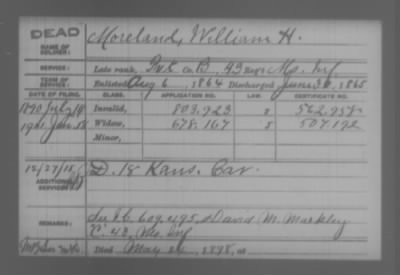 DEAD
NAME OF SOLDIER:
Moreland, William H.
SERVICE:
Late rank, Pvt Co. B, 43 Reg't Mo. Inf
TERM OF SERVICE:
Enlisted Aug 6, 1864 Discharged June 30, 1865
DATE OF FILING. CLASS. APPLICATION NO. LAW. CERTIFICATE NO.
1890 July Invalid, 803.923 562.958
Jan Widow, 678.167 507.192
Minor,
ADDITIONAL SERVICES:
D. 18 Kans. Cav.
REMARKS:
David M. Markley
C. 43, Mo. Inf
Died May 1898, at